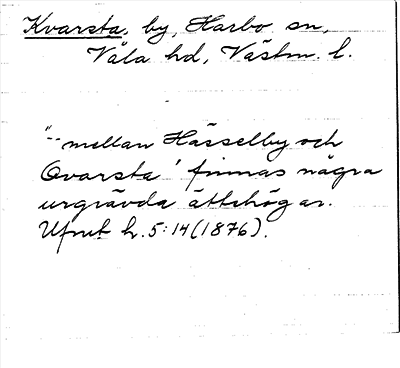 Kvarsta, by, Harbo sn,
Våla hd, Västm. l.
"-- mellan Hässelby och
Qvarsta' finnas några
urgrävda ättehögar.
Ufmt h. 5:14 (1876).